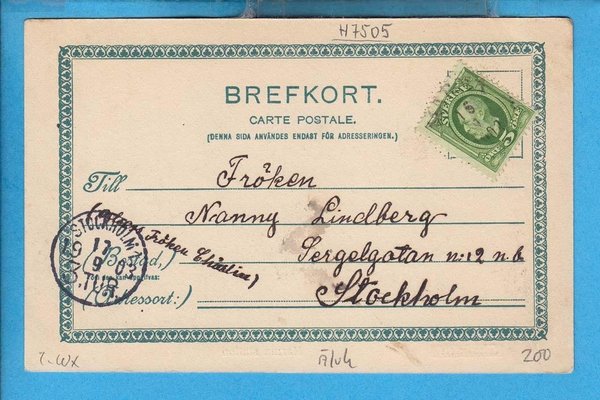 H7505
BREFKORT.
CARTE POSTALE.
(DENNA SIDA ANVÄNDES ENDAST FÖR ADRESSERINGEN.)
SVERIGE
5 ÖRE
Till Fröken
Nanny Lindberg
Fröken
(Bostad,
Sergelgatan n:12 n.b
Adressort:)
Stockholm
STOCKHOLM
17
9 03
TUR
200